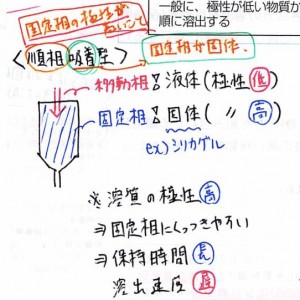 一般に、極性が低い物質か
順に溶出する
固定相の極性が高いこと
〈順相吸着型〉
固定相が固体.
移動相:液体(極性低)
固定相:固体(〃高)
ex)シリカゲル
※溶質の極性高
⇒固定相にくっつきやすい
⇒保持時間長
溶出速度遅